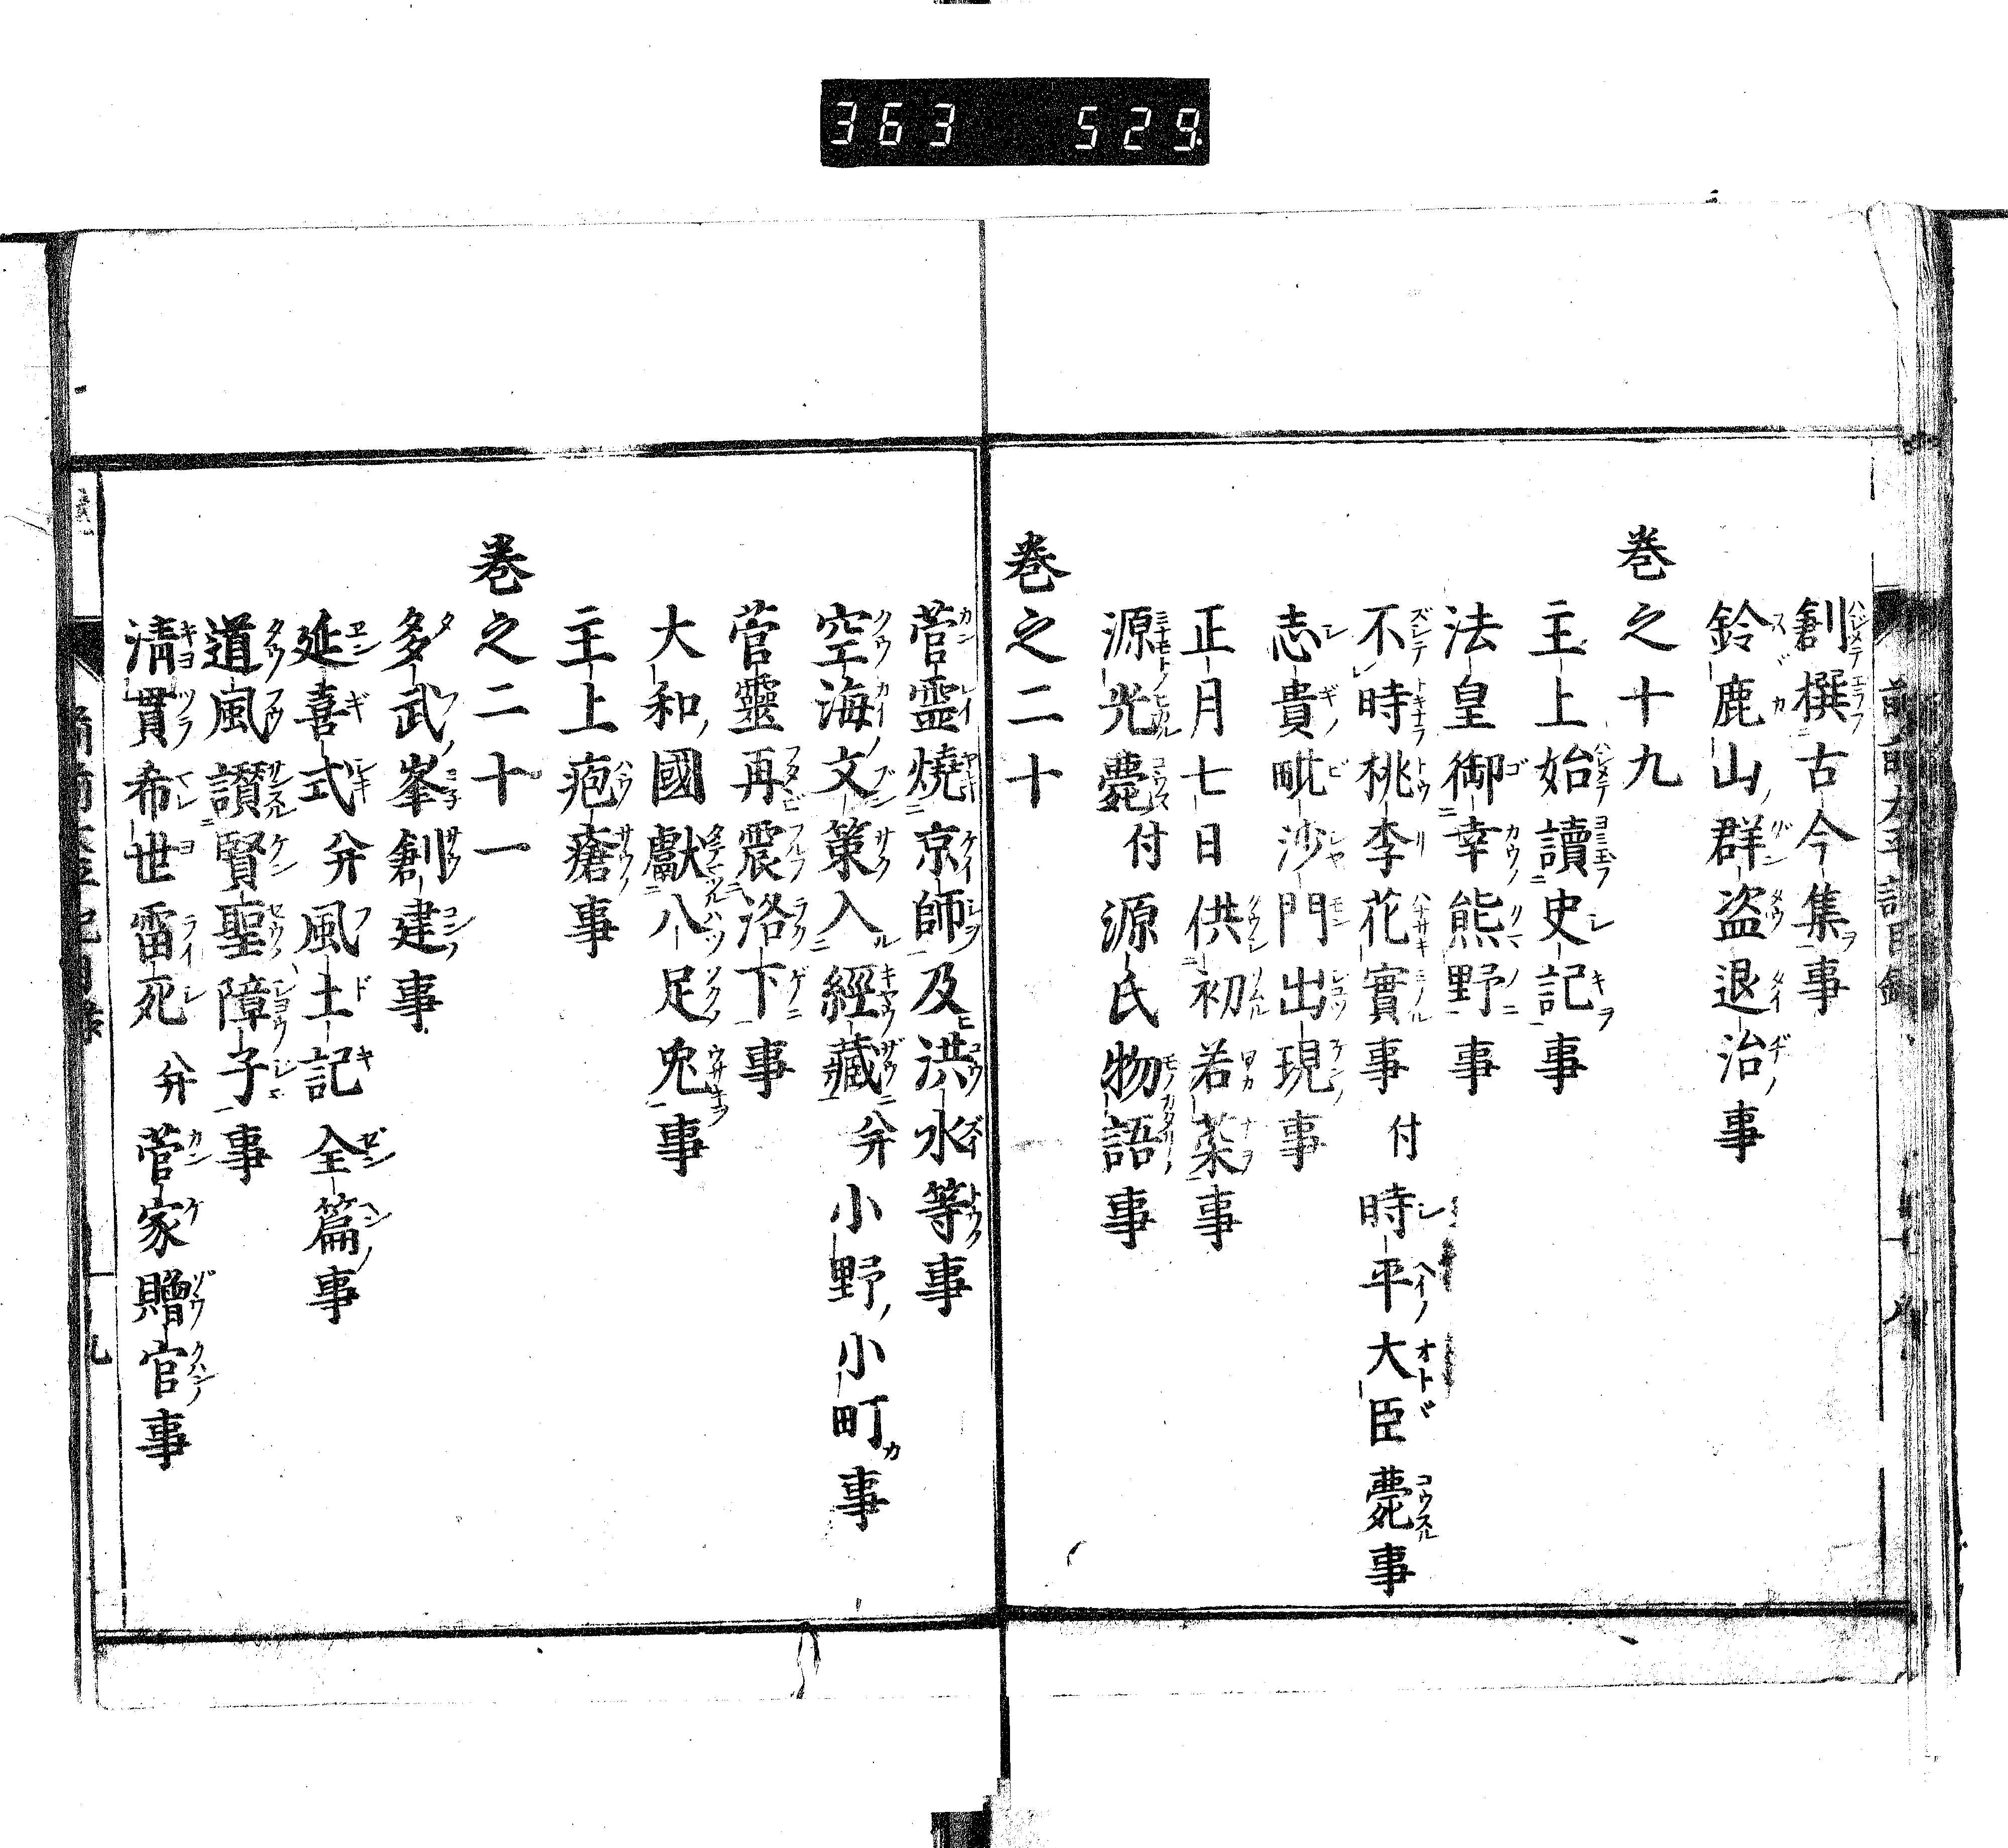 363 529
創撰古今集事
鈴鹿山群盗退治事
巻之十九
主上始讀史記事
法皇御幸熊野事
不時桃李花實事 付 時平大臣薨事
志貴毗沙門出現事
正月七日供初若菜事
源光薨付源氏物語事
巻之二十
菅靈燒京師及洪水等事
空海文策入經藏并小野小町事
菅靈再震洛下事
大和國獻八足兎事
主上疱瘡事
巻之二十一
多武峯創建事
延喜式并風土記全篇事
道風讃賢聖障子事
清貫希世雷死并菅家贈官事